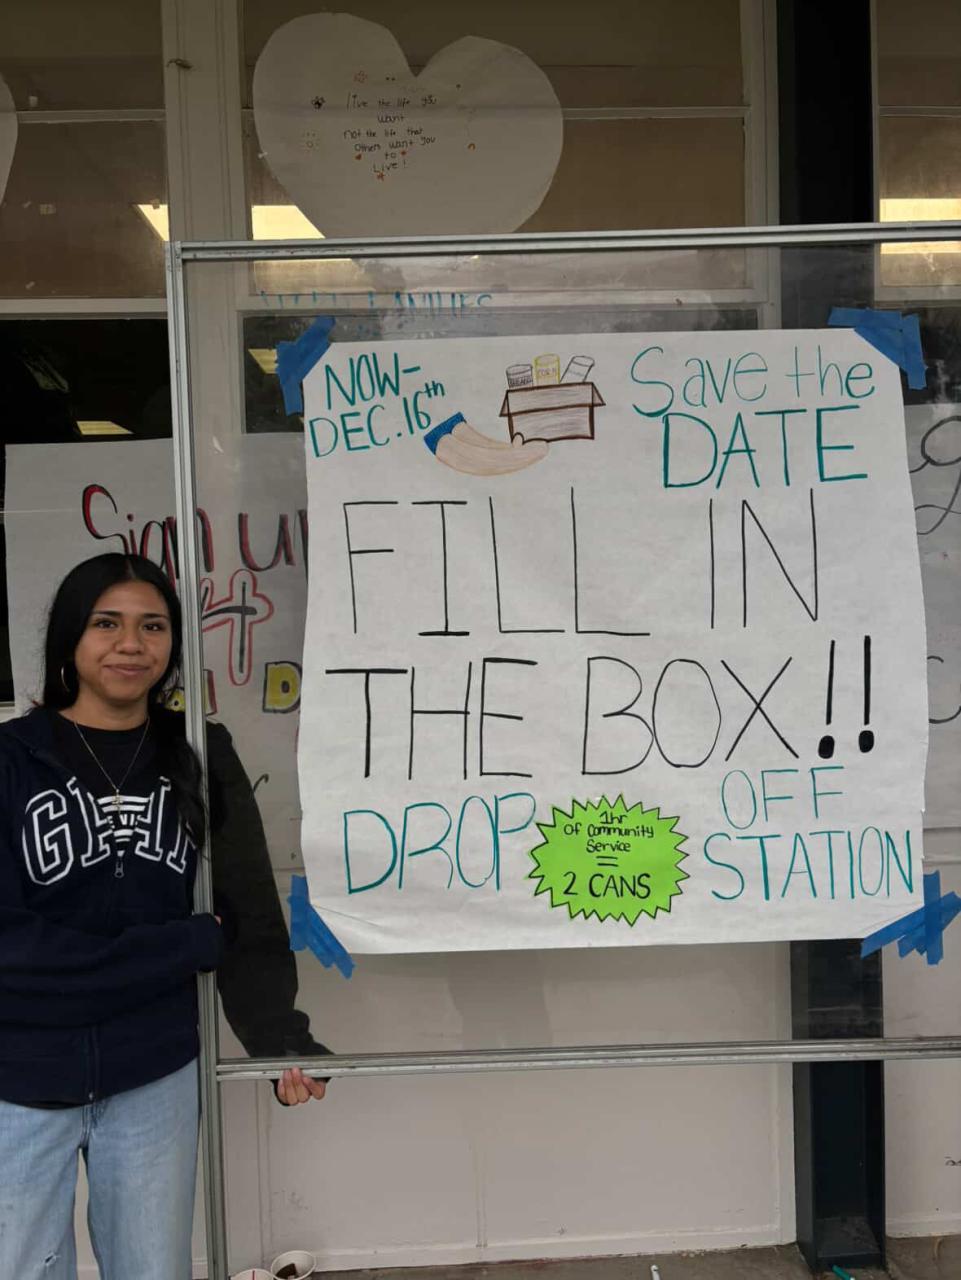 live the life you
want
not the life that
others want you
to
Live!
FAMILIES
NOW-
DEC. 16th
CORN
Save the
DATE
Sign up
4
FILL IN
THE BOX!!
DROP OFF
STATION
1hr
OF Community
Service
=
2 CANS
GAP